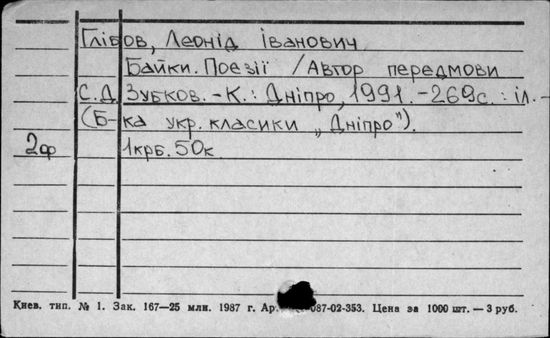 Глібов, Леонід Іванович
Байки. Поезії / Автор передмови
С.Д. Зубков. - К.: Дніпро, 1991. - 269с.: іл. -
(Б-ка укр. класики „Дніпро").
2ф 1крб. 50к.
Киев. тип. № 1. Зак. 167—25 млн. 1987 г. 087-02-353. Цена за 1000 шт. — 3 руб.